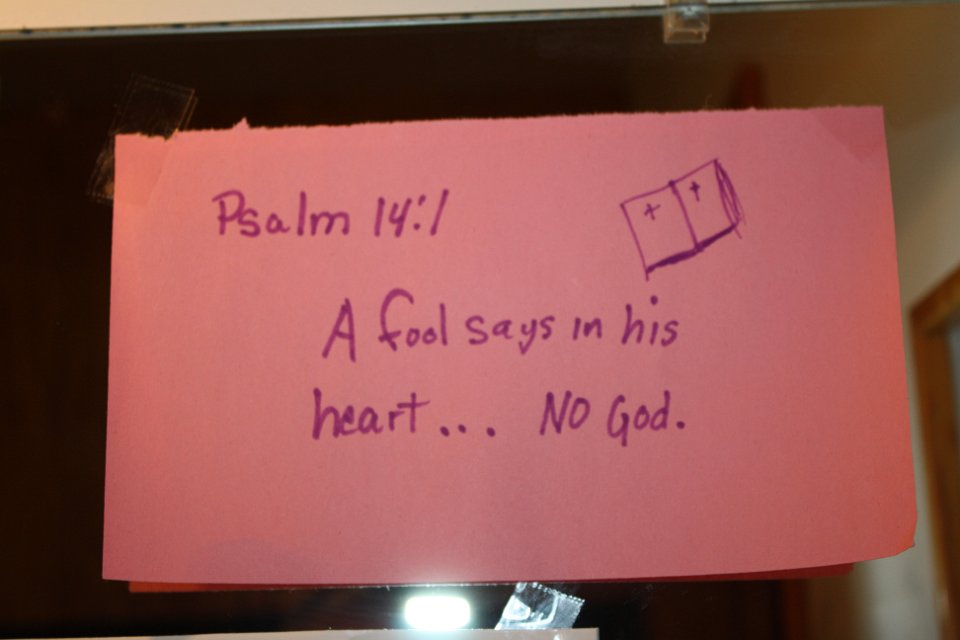 Psalm 14:1
A fool says in his
heart... NO God.